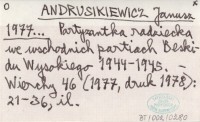 O
ANDRUSIKIEWICZ Janusz
1977... Partyzantka radziecka
we wschodnich partiach Beski-
du Wysokiego 1944-1945. -
Wierchy 46 (1977, druk 1978):
21-36, il.